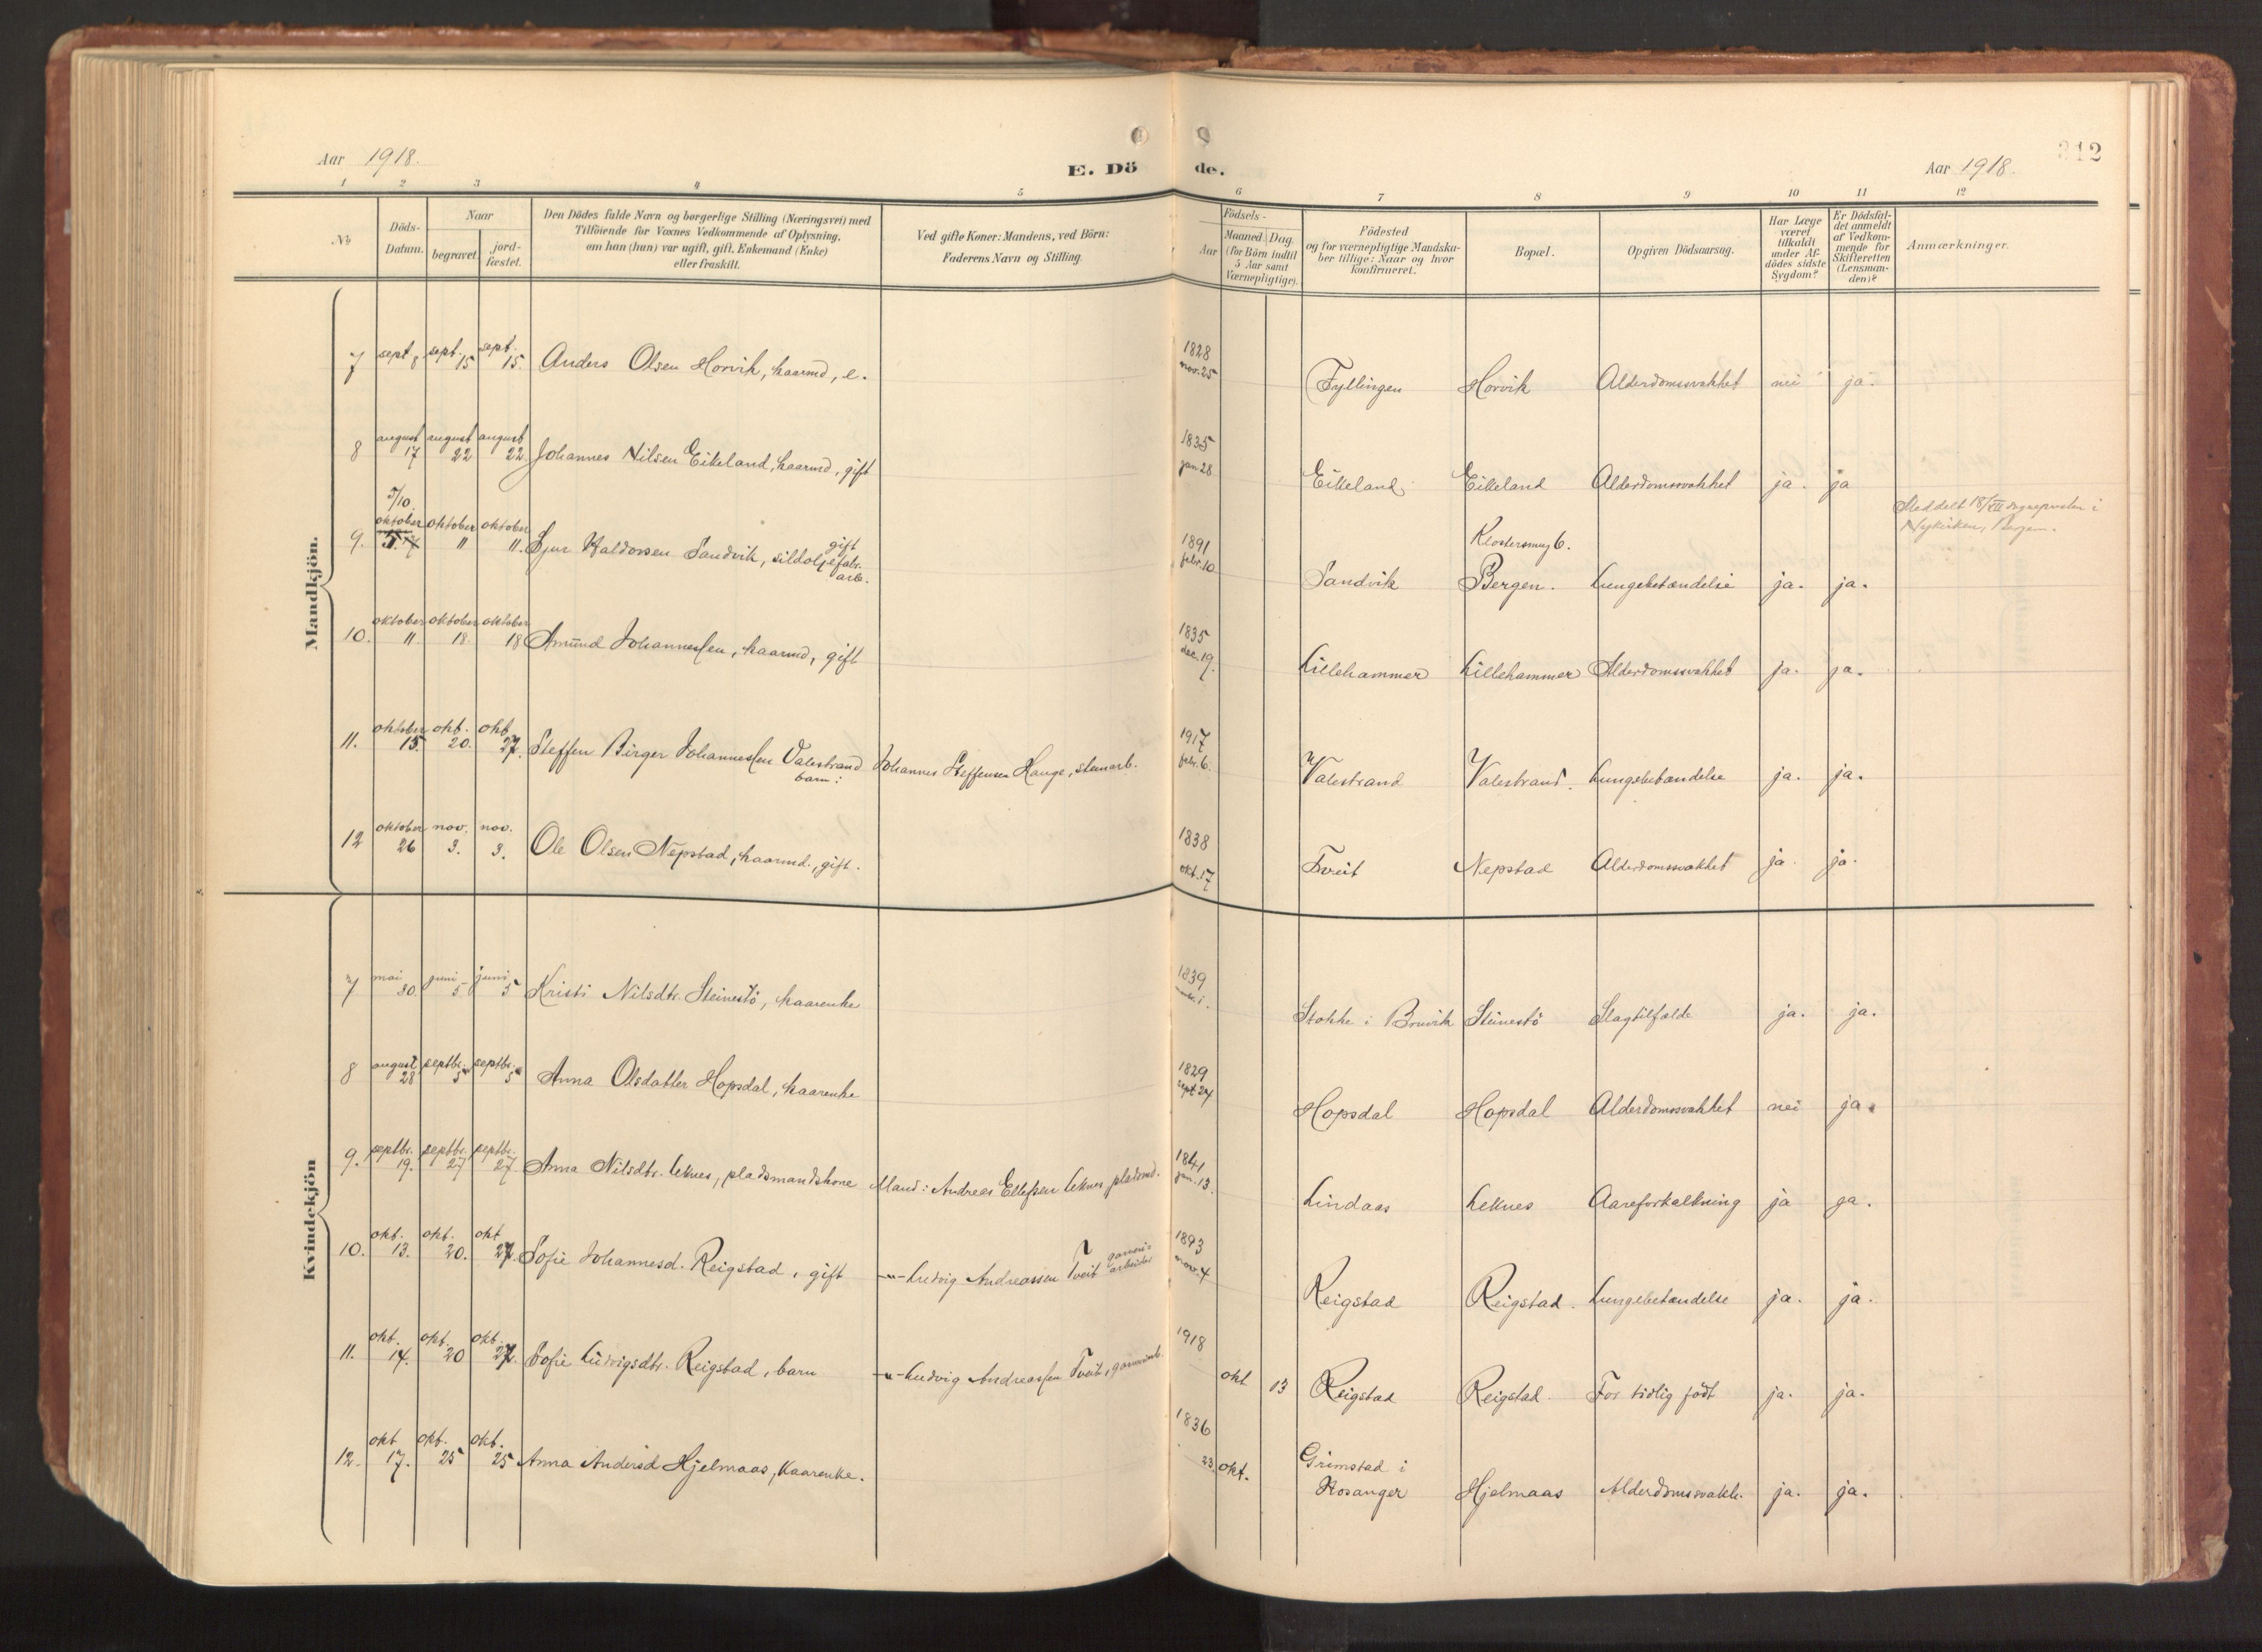 Aar 1918.
E. Dö de.
Aar 1918.
312
1 2 3 4 5 6 7 8 9 10 11 12
No
Döds-
Datum.
Naar
begravet.
jord-
fæstet.
Den Dödes fulde Navn og borgerlige Stilling (Næringsvei) med
Tilföiende for Voxnes Vedkommende af Oplysning,
om han (hun) var ugift, gift, Enkemand (Enke)
eller fraskilt.
Ved gifte Koner: Mandens, ved Börn:
Faderens Navn og Stilling.
Födsels-
Aar
Maaned.
Dag.
(for Börn indtil
5 Aar samt
Værnepligtige).
Födested
og for værnepligtige Mandska-
ber tillige: Naar og hvor
Konfirmeret.
Bopæl.
Opgiven Dödsaarsag.
Har Læge
været
tilkaldt
under Af-
dödes sidste
Sygdom?
Er Dödsfal-
det anmeldt
af Vedkom-
mende for
Skifteretten
(Lensman-
den)?
Anmærkninger.
Mandkjön.
7 sept 8 sept. 15 sept. 15. Anders Olsen Horvik, kaarmd, e. 1828 nov. 25 Fyllingen Horvik Alderdomssvakhet nei ja.
8 august 17 august 22 august 22. Johannes Nilsen Eikeland, kaarmd, gift 1835 jan 28 Eikeland Eikeland Alderdomssvakhet ja. ja
5/10.
9. oktober 5. oktober 11 oktober 11. Sjur Haldorsen Sandvik, sildoljefabr. arb. gift 1891 febr. 10 Sandvik Klostersmug 6. Bergen. Lungebetændelse ja. ja. Meddelt 18/XII sognepresten i Nykirken, Bergen.
10. oktober 11. oktober 18. oktober 18 Amund Johannessen, kaarmd, gift 1835 dec. 19. Lillehammer Lillehammer Alderdomssvakhet ja. ja.
11. oktober 15. okt. 20. okt. 27. Steffen Birger Johannessen Valestrand barn: Johannes Steffensen Hauge, stenarb. 1917 febr. 6. Valestrand Valestrand. Lungebetændelse ja. ja.
12 oktober 26 nov. 3. nov. 3. Ole Olsen Nepstad, kaarmd., gift. 1838 okt. 17 Tveit Nepstad Alderdomssvakhet ja. ja.
Kvindekjön
7 mai 30. juni 5. juni 5 Kristi Nilsdtr. Steinestö, kaarenke 1839 1. Stokke i Bruvik Steinestö Slagtilfælde ja. ja.
8 august 28 septbr. 5 septbr. 5 Anna Olsdatter Hopsdal, kaarenke 1829 sept 24 Hopsdal Hopsdal Alderdomssvakhet nei ja.
9. septbr. 19. septbr. 27 septbr. 27 Anna Nilsdtr. Leknes, pladsmandskone Mand: Andreas Ellefsen Leknes, pladsmd. 1841 jan. 13. Lindaas Leknes Aareforkalkning ja ja.
10. okt. 13. okt. 20. okt 27. Sofie Johannesd. Reigstad, gift -"- Ludvig Andreassen Tveit garveri- arbeider 1893 nov. 4 Reigstad Reigstad. Lungebetændelse ja. ja.
11. okt. 14. okt. 20 okt. 27. Sofie Ludvigsdtr. Reigstad, barn -"- Ludvig Andreassen Tveit, garveriarb. 1918 okt 13 Reigstad Reigstad. For tidlig født ja. ja.
12. okt 17. okt. 25 okt. 25 Anna Andersd Hjelmaas, Kaarenke. 1836 23. okt. Grimstad i Hosanger Hjelmaas Alderdomssvakh. ja. ja.